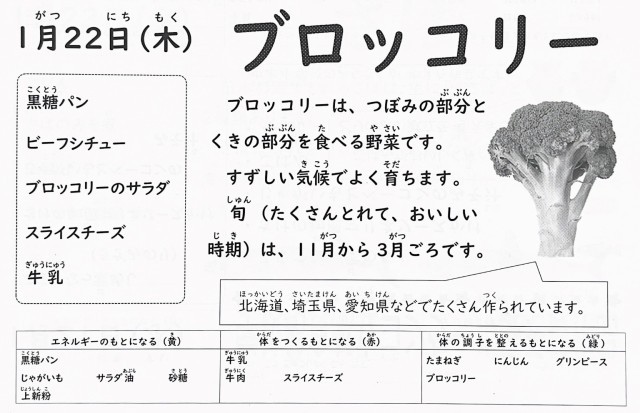 1月22日(木)
ブロッコリー
黒糖パン
ビーフシチュー
ブロッコリーのサラダ
スライスチーズ
牛乳
ブロッコリーは、つぼみの部分と
くきの部分を食べる野菜です。
すずしい気候でよく育ちます。
旬(たくさんとれて、おいしい
時期)は、11月から3月ごろです。
北海道、埼玉県、愛知県などでたくさん作られています。
エネルギーのもとになる(黄) 体をつくるもとになる(赤) 体の調子を整えるもとになる(緑)
黒糖パン 牛乳 たまねぎ にんじん グリンピース
じゃがいも サラダ油 砂糖 牛肉 スライスチーズ ブロッコリー
上新粉